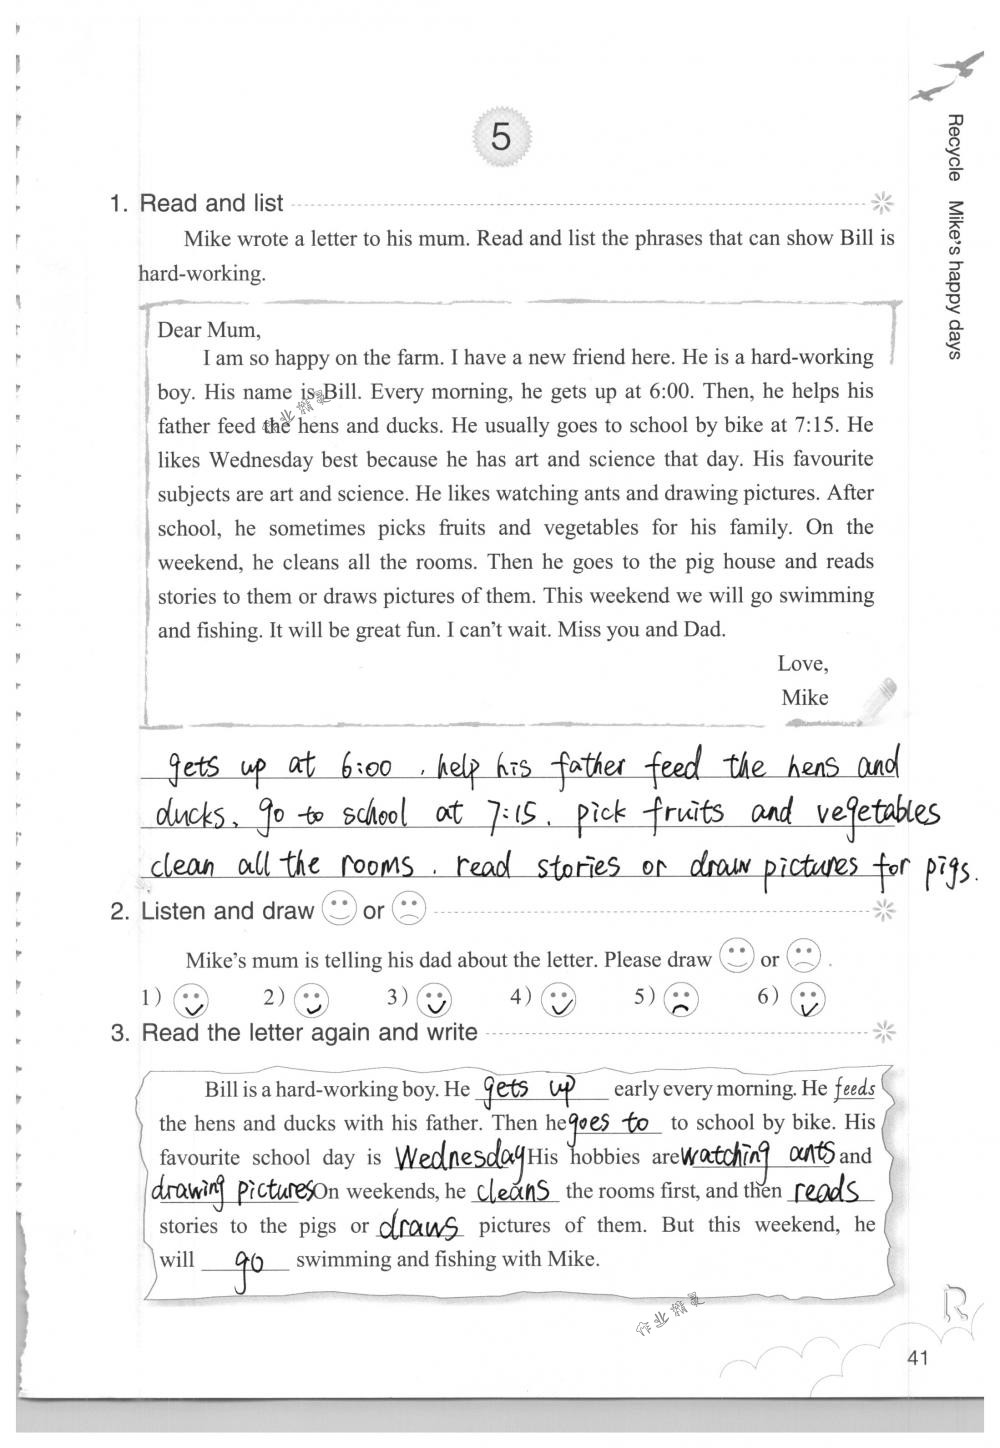 5
Recycle Mike's happy days
1. Read and list
Mike wrote a letter to his mum. Read and list the phrases that can show Bill is
hard-working.
Dear Mum,
I am so happy on the farm. I have a new friend here. He is a hard-working
boy. His name is Bill. Every morning, he gets up at 6:00. Then, he helps his
father feed the hens and ducks. He usually goes to school by bike at 7:15. He
likes Wednesday best because he has art and science that day. His favourite
subjects are art and science. He likes watching ants and drawing pictures. After
school, he sometimes picks fruits and vegetables for his family. On the
weekend, he cleans all the rooms. Then he goes to the pig house and reads
stories to them or draws pictures of them. This weekend we will go swimming
and fishing. It will be great fun. I can't wait. Miss you and Dad.
Love,
Mike
作业精灵
gets up at 6:00 、help his father feed the hens and
ducks、go to school at 7:15、pick fruits and vegetables
clean all the rooms 、read stories or draw pictures for pigs.
2. Listen and draw or
Mike's mum is telling his dad about the letter. Please draw or .
1) 2) 3) 4) 5) 6)
3. Read the letter again and write
Bill is a hard-working boy. He gets up early every morning. He feeds
the hens and ducks with his father. Then he goes to to school by bike. His
favourite school day is Wednesday His hobbies are watching ants and
drawing pictures On weekends, he cleans the rooms first, and then reads
stories to the pigs or draws pictures of them. But this weekend, he
will go swimming and fishing with Mike.
作业精灵
R
41